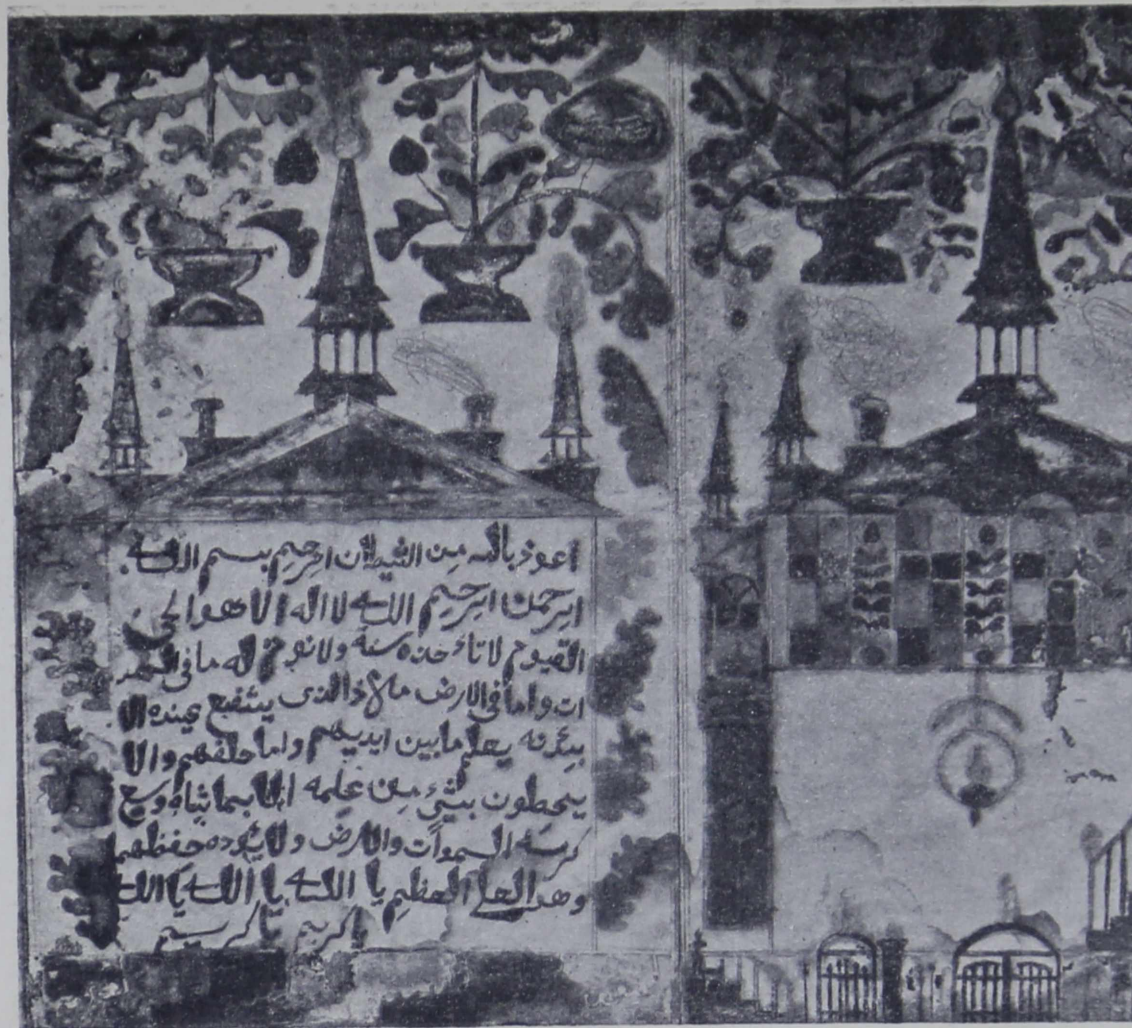 اعوذ بالله من الشيطان الرجيم بسم الله
الرحمن الرحيم الله لا اله الا هوا لحي
القيوم لا تاءخذه سنة ولا نوم له ما فى السمو
ات واما فى الارض من ذا الذى يشفع عنده الا
بئذنه يعلم ما بين ايديهم واما خلفهم والا
يحطون بشىء من علمه الا بما شاء وسع
كرسه السموات والارض ولا يؤده حفظهم
وهو العلي العظيم يا الله يا الله يا الله
يا كريم يا كريم